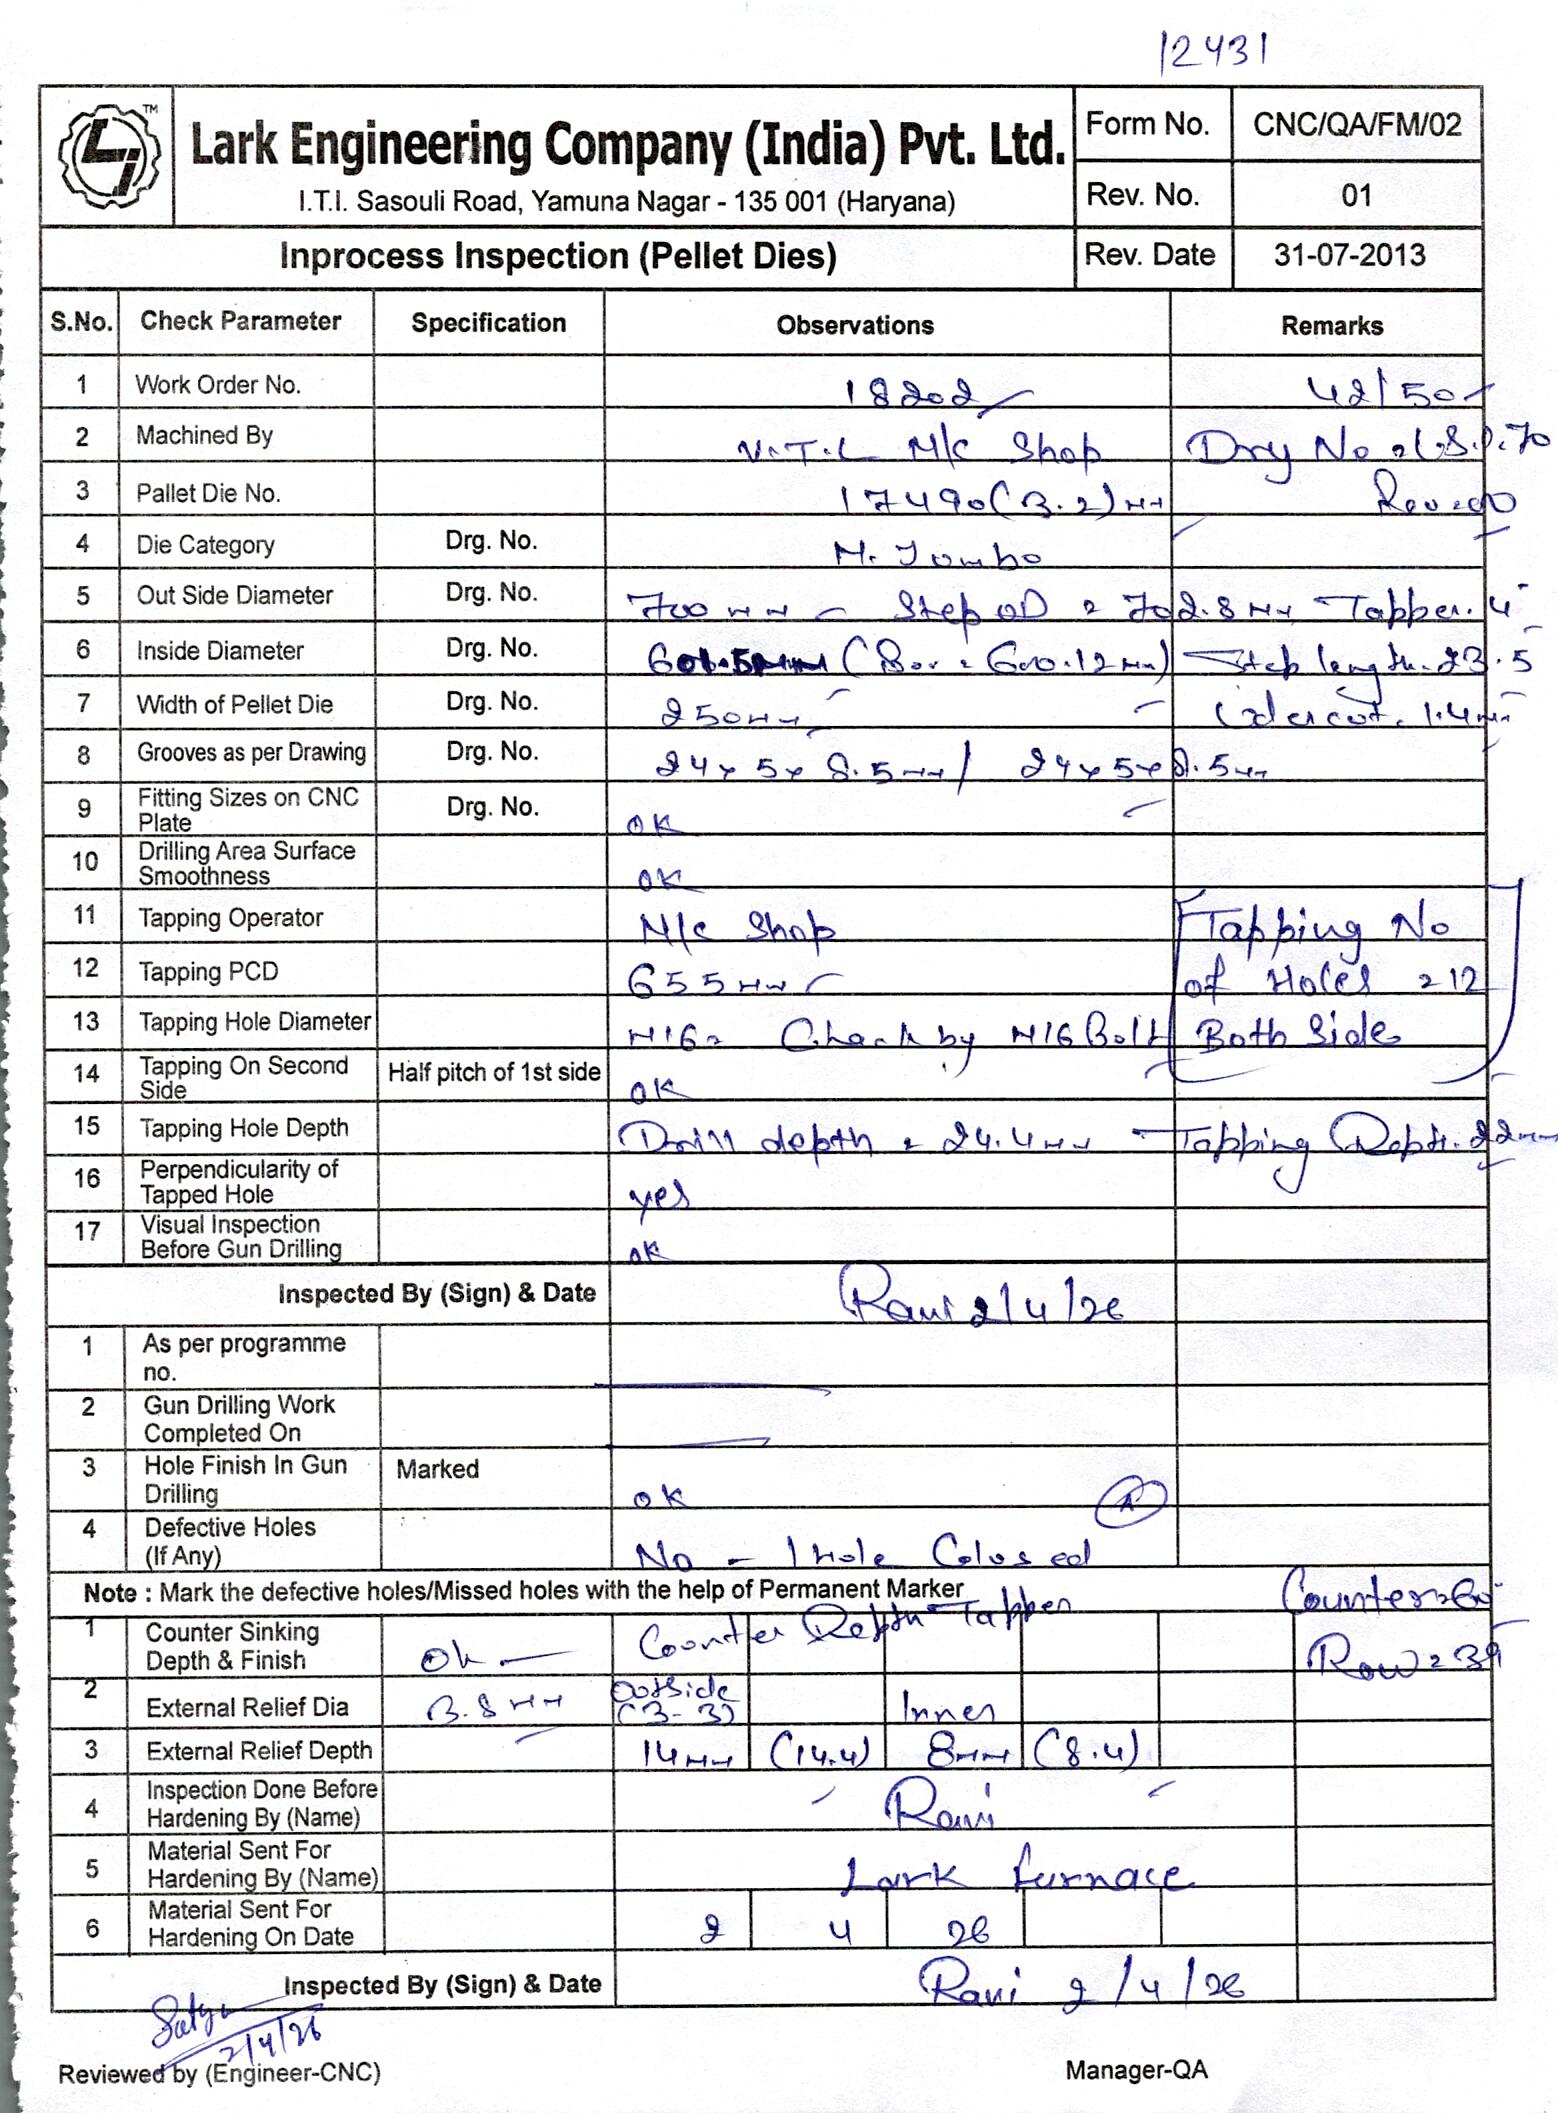 12431
Lark Engineering Company (India) Pvt. Ltd.
I.T.I. Sasouli Road, Yamuna Nagar - 135 001 (Haryana)
Form No. CNC/QA/FM/02
Rev. No. 01
Inprocess Inspection (Pellet Dies) Rev. Date 31-07-2013
S.No. Check Parameter Specification Observations Remarks
1 Work Order No. 18202 42/50
2 Machined By V.T.L M/C Shop
3 Pallet Die No. 17490 (3.2) mm
4 Die Category Drg. No. M. Jumbo
5 Out Side Diameter Drg. No. 700 mm Step OD = 702.8 mm Tapper. 4
6 Inside Diameter Drg. No. 601.5mm (Bor = 600.12 mm) Step length. 23.5
7 Width of Pellet Die Drg. No. 250mm 1.4mm
8 Grooves as per Drawing Drg. No. 24x5x8.5mm / 24x5x8.5mm
9 Fitting Sizes on CNC Plate Drg. No. OK
10 Drilling Area Surface Smoothness OK
11 Tapping Operator M/c Shop Tapping No
12 Tapping PCD 655mm of Holes = 12
13 Tapping Hole Diameter M16= Check by M16 Bolt Both Side
14 Tapping On Second Side Half pitch of 1st side OK
15 Tapping Hole Depth Drill depth = 24.4mm Tapping Depth. 22mm
16 Perpendicularity of Tapped Hole yes
17 Visual Inspection Before Gun Drilling OK
Inspected By (Sign) & Date Ravi 2/4/26
1 As per programme no.
2 Gun Drilling Work Completed On
3 Hole Finish In Gun Drilling Marked OK A
4 Defective Holes (If Any) No - 1 Hole Colused
Note : Mark the defective holes/Missed holes with the help of Permanent Marker
1 Counter Sinking Depth & Finish Ok Counter Depth Tapper Row = 39
2 External Relief Dia 3.8mm Outside (3-3) Inner
3 External Relief Depth 14mm (14.4) 8mm (8.4)
4 Inspection Done Before Hardening By (Name) Ravi
5 Material Sent For Hardening By (Name) Lark furnace
6 Material Sent For Hardening On Date 2 4 26
Inspected By (Sign) & Date Ravi 2/4/26
Satya
2/4/26
Reviewed by (Engineer-CNC) Manager-QA